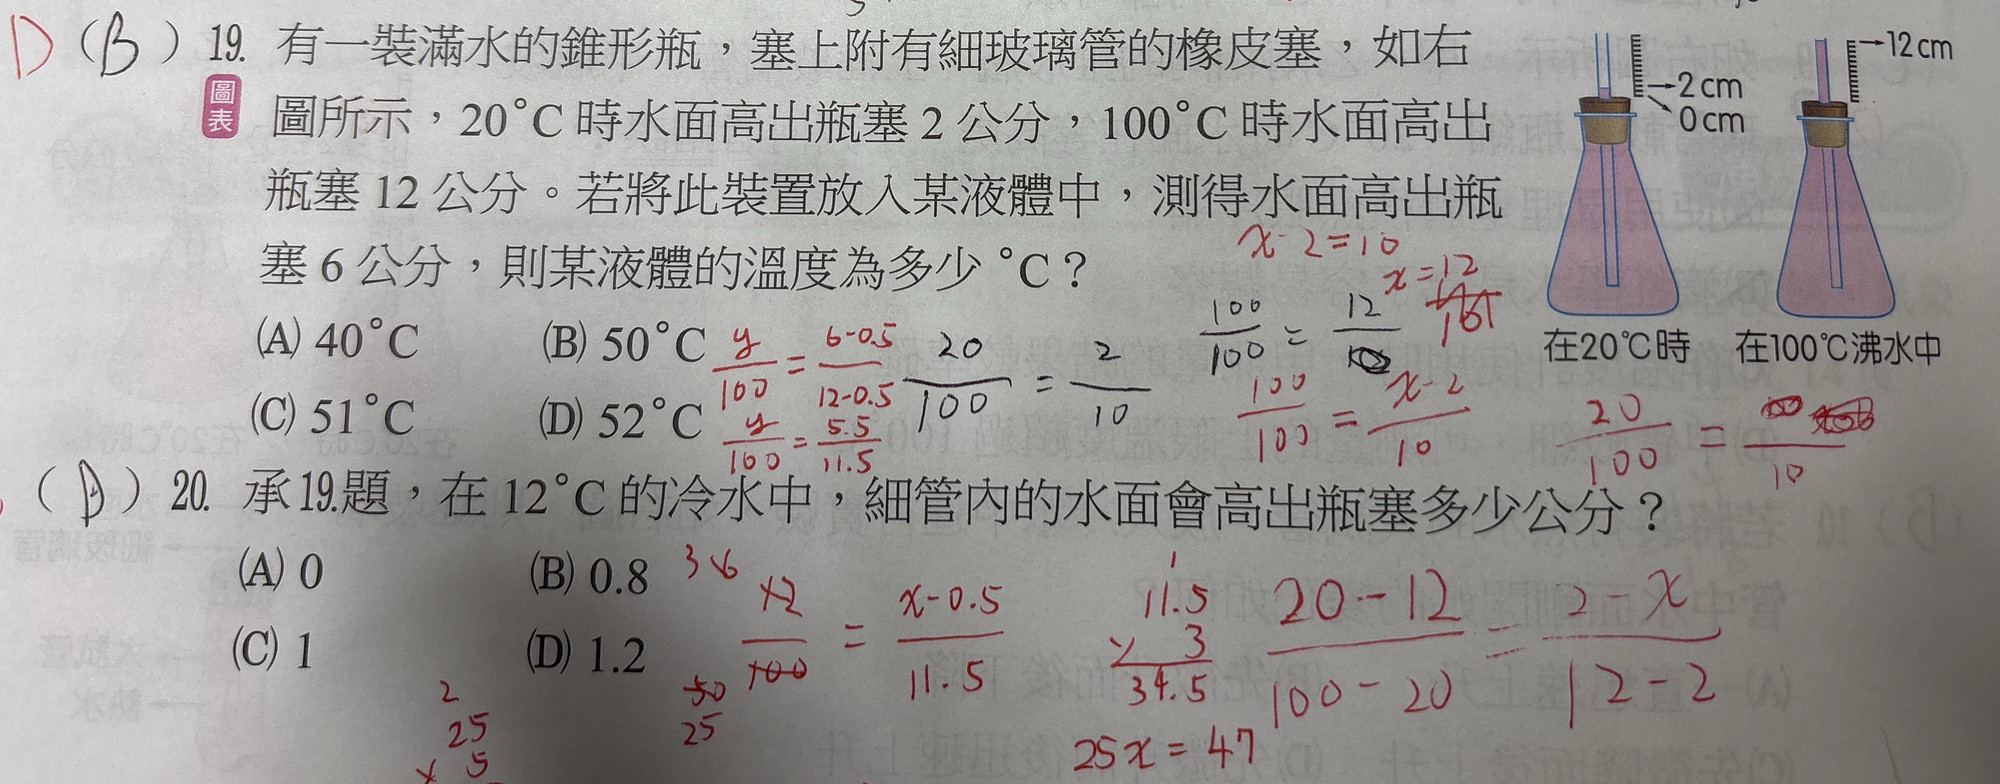 D（B）19. 有一裝滿水的錐形瓶，塞上附有細玻璃管的橡皮塞，如右
圖表 圖所示，20°C 時水面高出瓶塞 2 公分，100°C 時水面高出
瓶塞 12 公分。若將此裝置放入某液體中，測得水面高出瓶
塞 6 公分，則某液體的溫度為多少 °C？
(A) 40°C (B) 50°C
(C) 51°C (D) 52°C
12 cm
2 cm
0 cm
在20℃時 在100℃沸水中
x-2=10
x=12
y/100 = 6-0.5/12-0.5
y/100 = 5.5/11.5
20/100 = 2/10
100/100 = 12/
100/100 = x-2/10
20/100 = /10
（D）20. 承19.題，在 12°C 的冷水中，細管內的水面會高出瓶塞多少公分？
(A) 0 (B) 0.8
(C) 1 (D) 1.2
12/100 = x-0.5/11.5
11.5
× 3
34.5
20-12/100-20 = 2-x/12-2
50
25
2
25
× 5
25x = 47